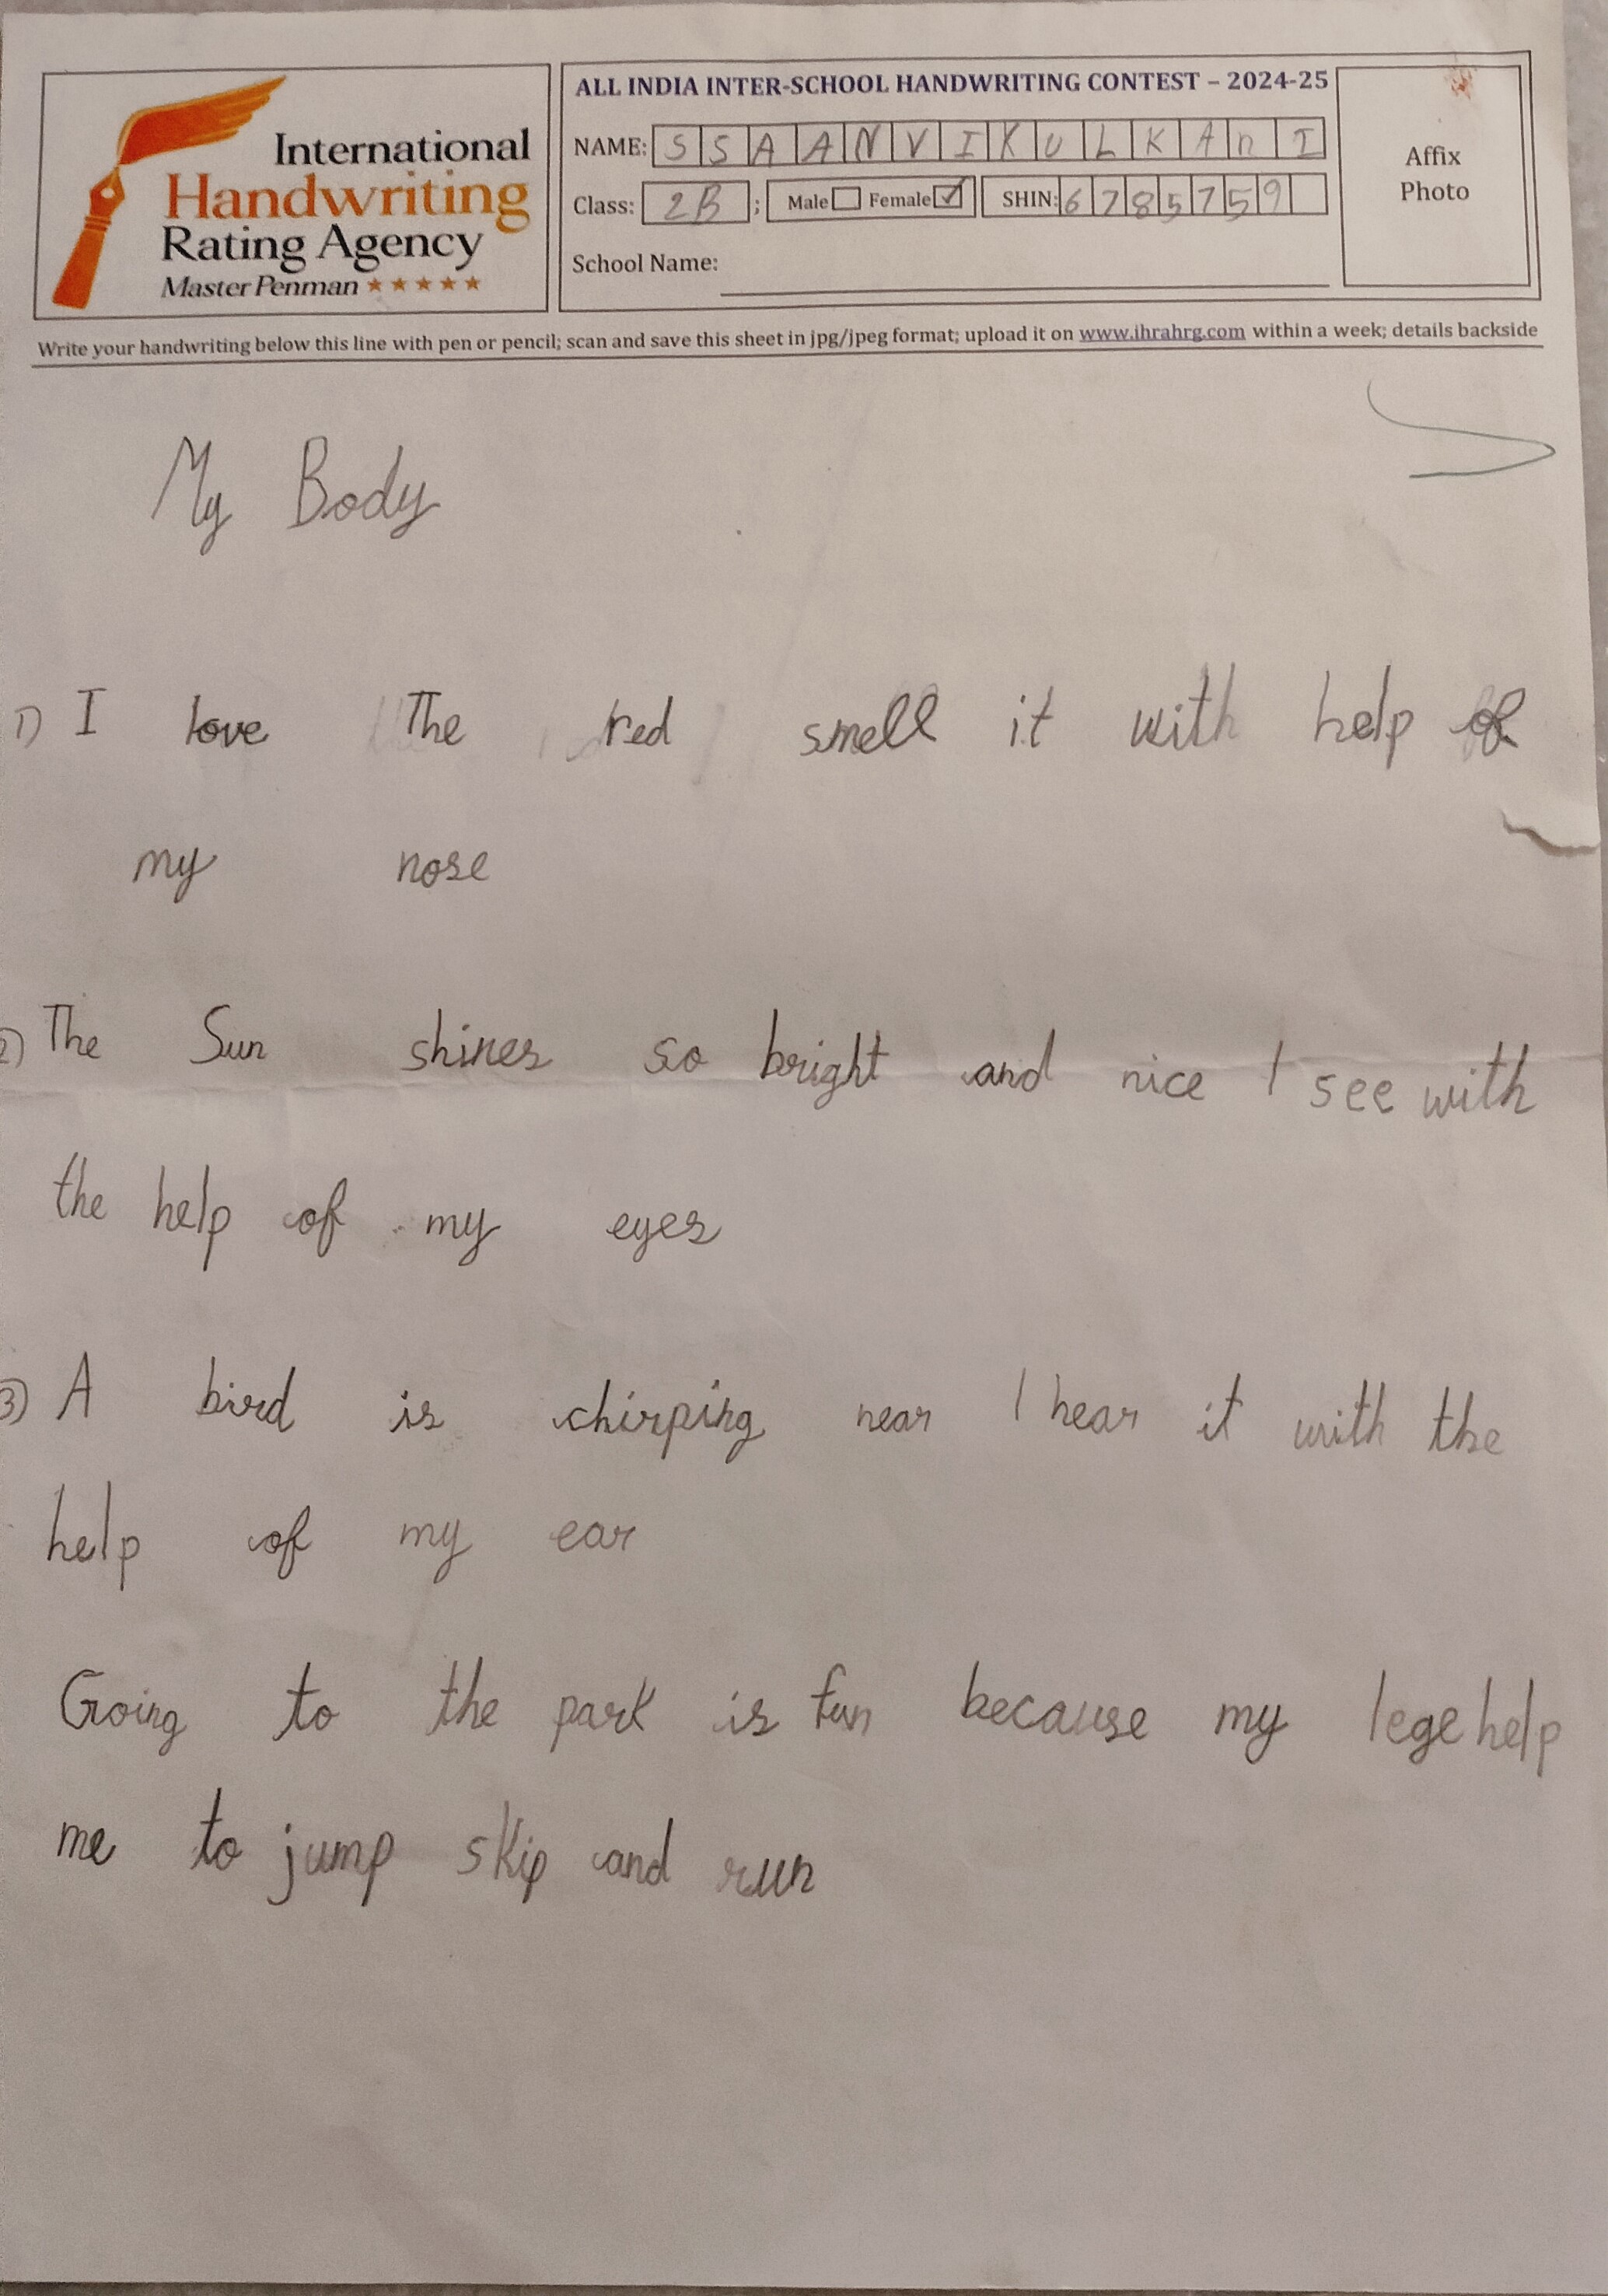 International
Handwriting
Rating Agency
Master Penman ★★★★★
ALL INDIA INTER-SCHOOL HANDWRITING CONTEST – 2024-25
NAME: SSAANVIKULKAnI
Class: 2B ; Male Female ✓ SHIN: 6785759
School Name:
Affix
Photo
Write your handwriting below this line with pen or pencil; scan and save this sheet in jpg/jpeg format; upload it on www.ihrahrg.com within a week; details backside
My Body
1) I love The red smell it with help of
my nose
2) The Sun shines so bright and nice I see with
the help of my eyes
3) A bird is chirping near I hear it with the
help of my ear
Going to the park is fun because my lege help
me to jump skip and run